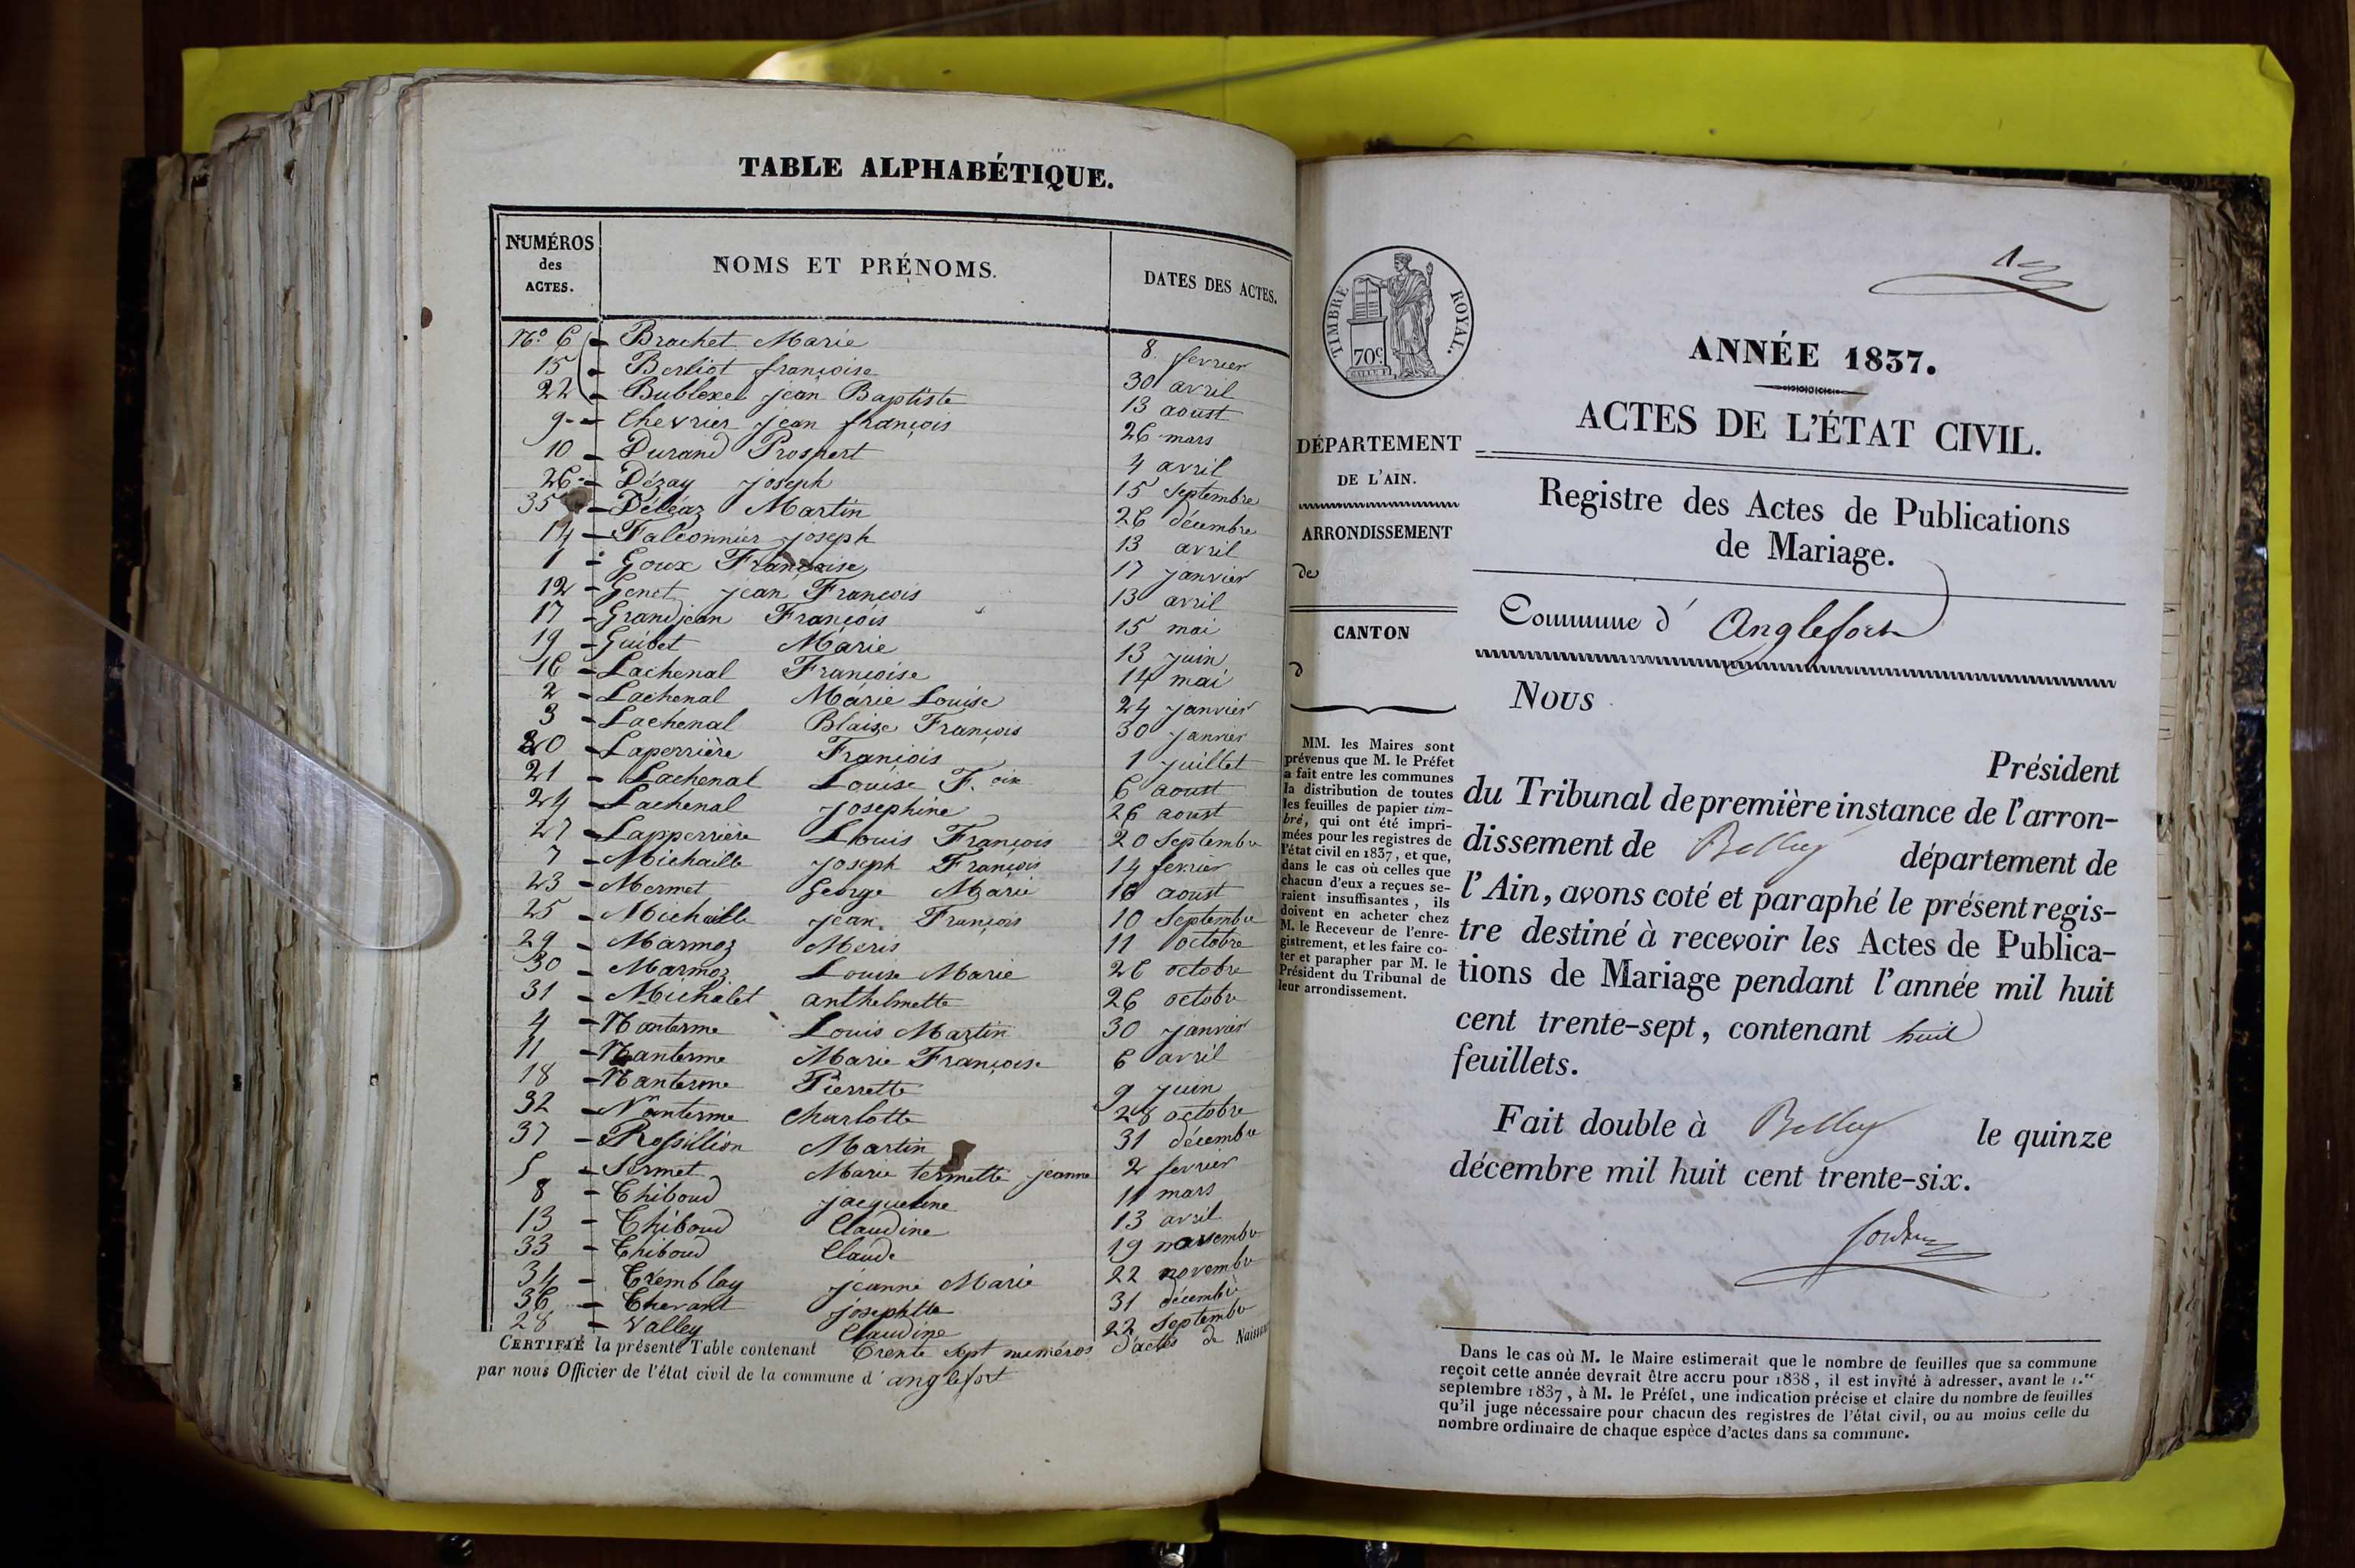 TABLE ALPHABÉTIQUE.
NUMÉROS
des
ACTES.
NOMS ET PRÉNOMS.
DATES DES ACTES.
N.º 6 - Brachet Marie 8 fevrier
15 - Berliot françoise 30 avril
22 - Bublexel jean Baptiste 13 aoust
9 - Chevrier jean françois 26 mars
10 - Durand Prospert 4 avril
26 - Dézay joseph 15 Septembre
35 - Déléaz Martin 26 décembre
14 - Falconnier joseph 13 avril
1 - Goux Françoise 17 janvier
12 - Genet jean François 13 avril
17 - Grandjean François 15 mai
19 - Guibet Marie 13 juin
16 - Lachenal Françoise 14 mai
2 - Lachenal Marie Louise 24 janvier
3 - Lachenal Blaise François 30 janvier
20 - Laperrière François 1 juillet
21 - Lachenal Louise F.oise 6 aoust
24 - Lachenal josephine 26 aoust
27 - Lapperrière Louis François 20 Septembre
7 - Michaille joseph François 14 fevrier
23 - Mermet George Marie 16 aoust
25 - Michaille jean François 10 Septembre
29 - Marmoz Meris 11 octobre
30 - Marmoz Louise Marie 26 octobre
31 - Michalet anthelmette 26 octobre
4 - Nanterme Louis Martin 30 janvier
11 - Nanterme Marie Françoise 6 avril
18 - Nanterme Pierrette 9 juin
32 - Nanterme Charlotte 28 octobre
37 - Rossillion Martin 31 décembre
5 - Sermet Marie termette jeanne 2 fevrier
8 - Thiboud jacqueline 11 mars
13 - Thiboud Claudine 13 avril
33 - Thiboud Claude 19 novembre
34 - Tremblay jeanne Marie 22 novembre
36 - Thevant josephtte 31 décembre
28 - Valley Claudine 22 Septembre
CERTIFIÉ la présente Table contenant Trente sept numéros d'actes de Naissan
par nous Officier de l'état civil de la commune d'anglefort
TIMBRE ROYAL.
70c.
ANNÉE 1837.
ACTES DE L'ÉTAT CIVIL.
DÉPARTEMENT
DE L'AIN.
ARRONDISSEMENT
de
CANTON
d
MM. les Maires sont
prévenus que M. le Préfet
a fait entre les communes
la distribution de toutes
les feuilles de papier tim-
bré, qui ont été impri-
mées pour les registres de
l'état civil en 1837, et que,
dans le cas où celles que
chacun d'eux a reçues se-
raient insuffisantes, ils
doivent en acheter chez
M. le Receveur de l'enre-
gistrement, et les faire co-
ter et parapher par M. le
Président du Tribunal de
leur arrondissement.
Registre des Actes de Publications
de Mariage.
Commune d' Anglefort
NOUS
Président
du Tribunal de première instance de l'arron-
dissement de Belley département de
l'Ain, avons coté et paraphé le présent regis-
tre destiné à recevoir les Actes de Publica-
tions de Mariage pendant l'année mil huit
cent trente-sept, contenant huit
feuillets.
Fait double à Belley le quinze
décembre mil huit cent trente-six.
Dans le cas où M. le Maire estimerait que le nombre de feuilles que sa commune
reçoit cette année devrait être accru pour 1838, il est invité à adresser, avant le 1.er
septembre 1837, à M. le Préfet, une indication précise et claire du nombre de feuilles
qu'il juge nécessaire pour chacun des registres de l'état civil, ou au moins celle du
nombre ordinaire de chaque espèce d'actes dans sa commune.